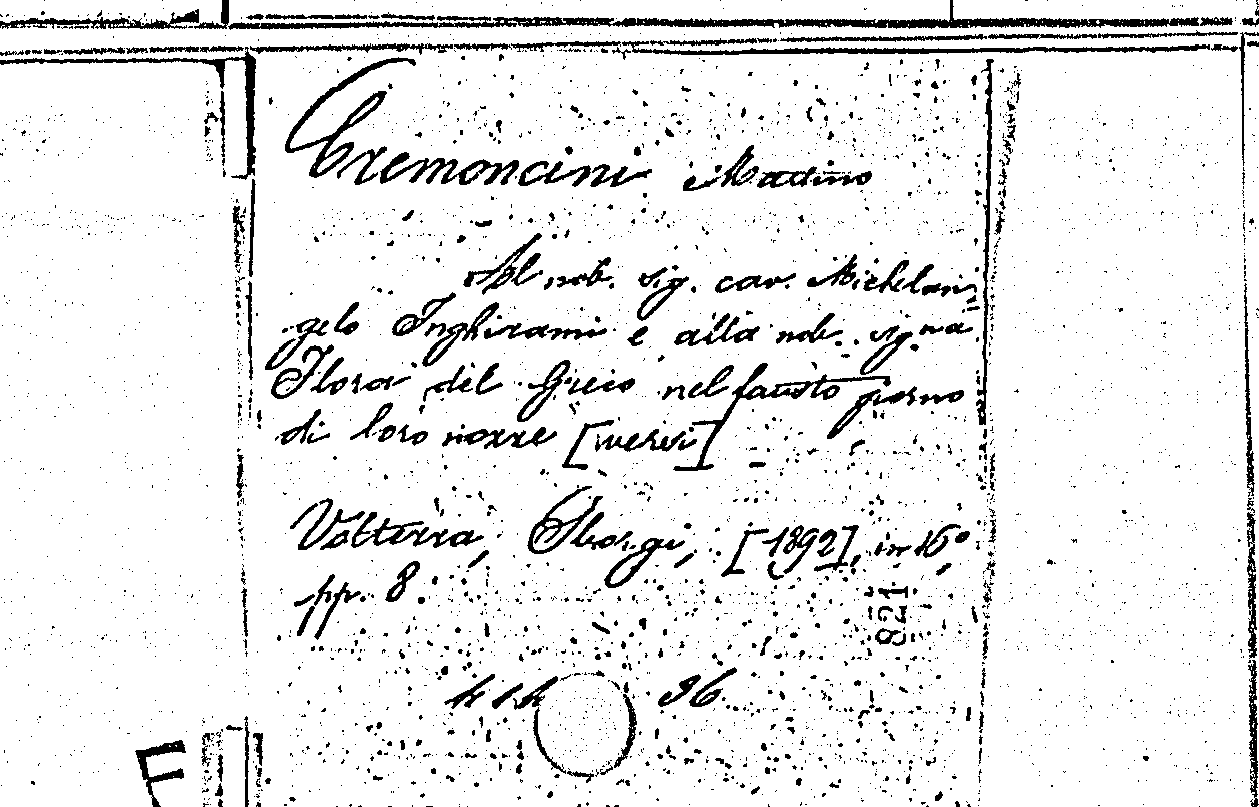 Cremoncini Martino
Al nob. sig. cav. Michelan,
gelo Inghirami e alla nob. sig.na
Flora del Greco nel fausto giorno
di loro nozze [versi]
Volterra, Sborgi, [1892], in 16°,
pp. 8.
821
96
F